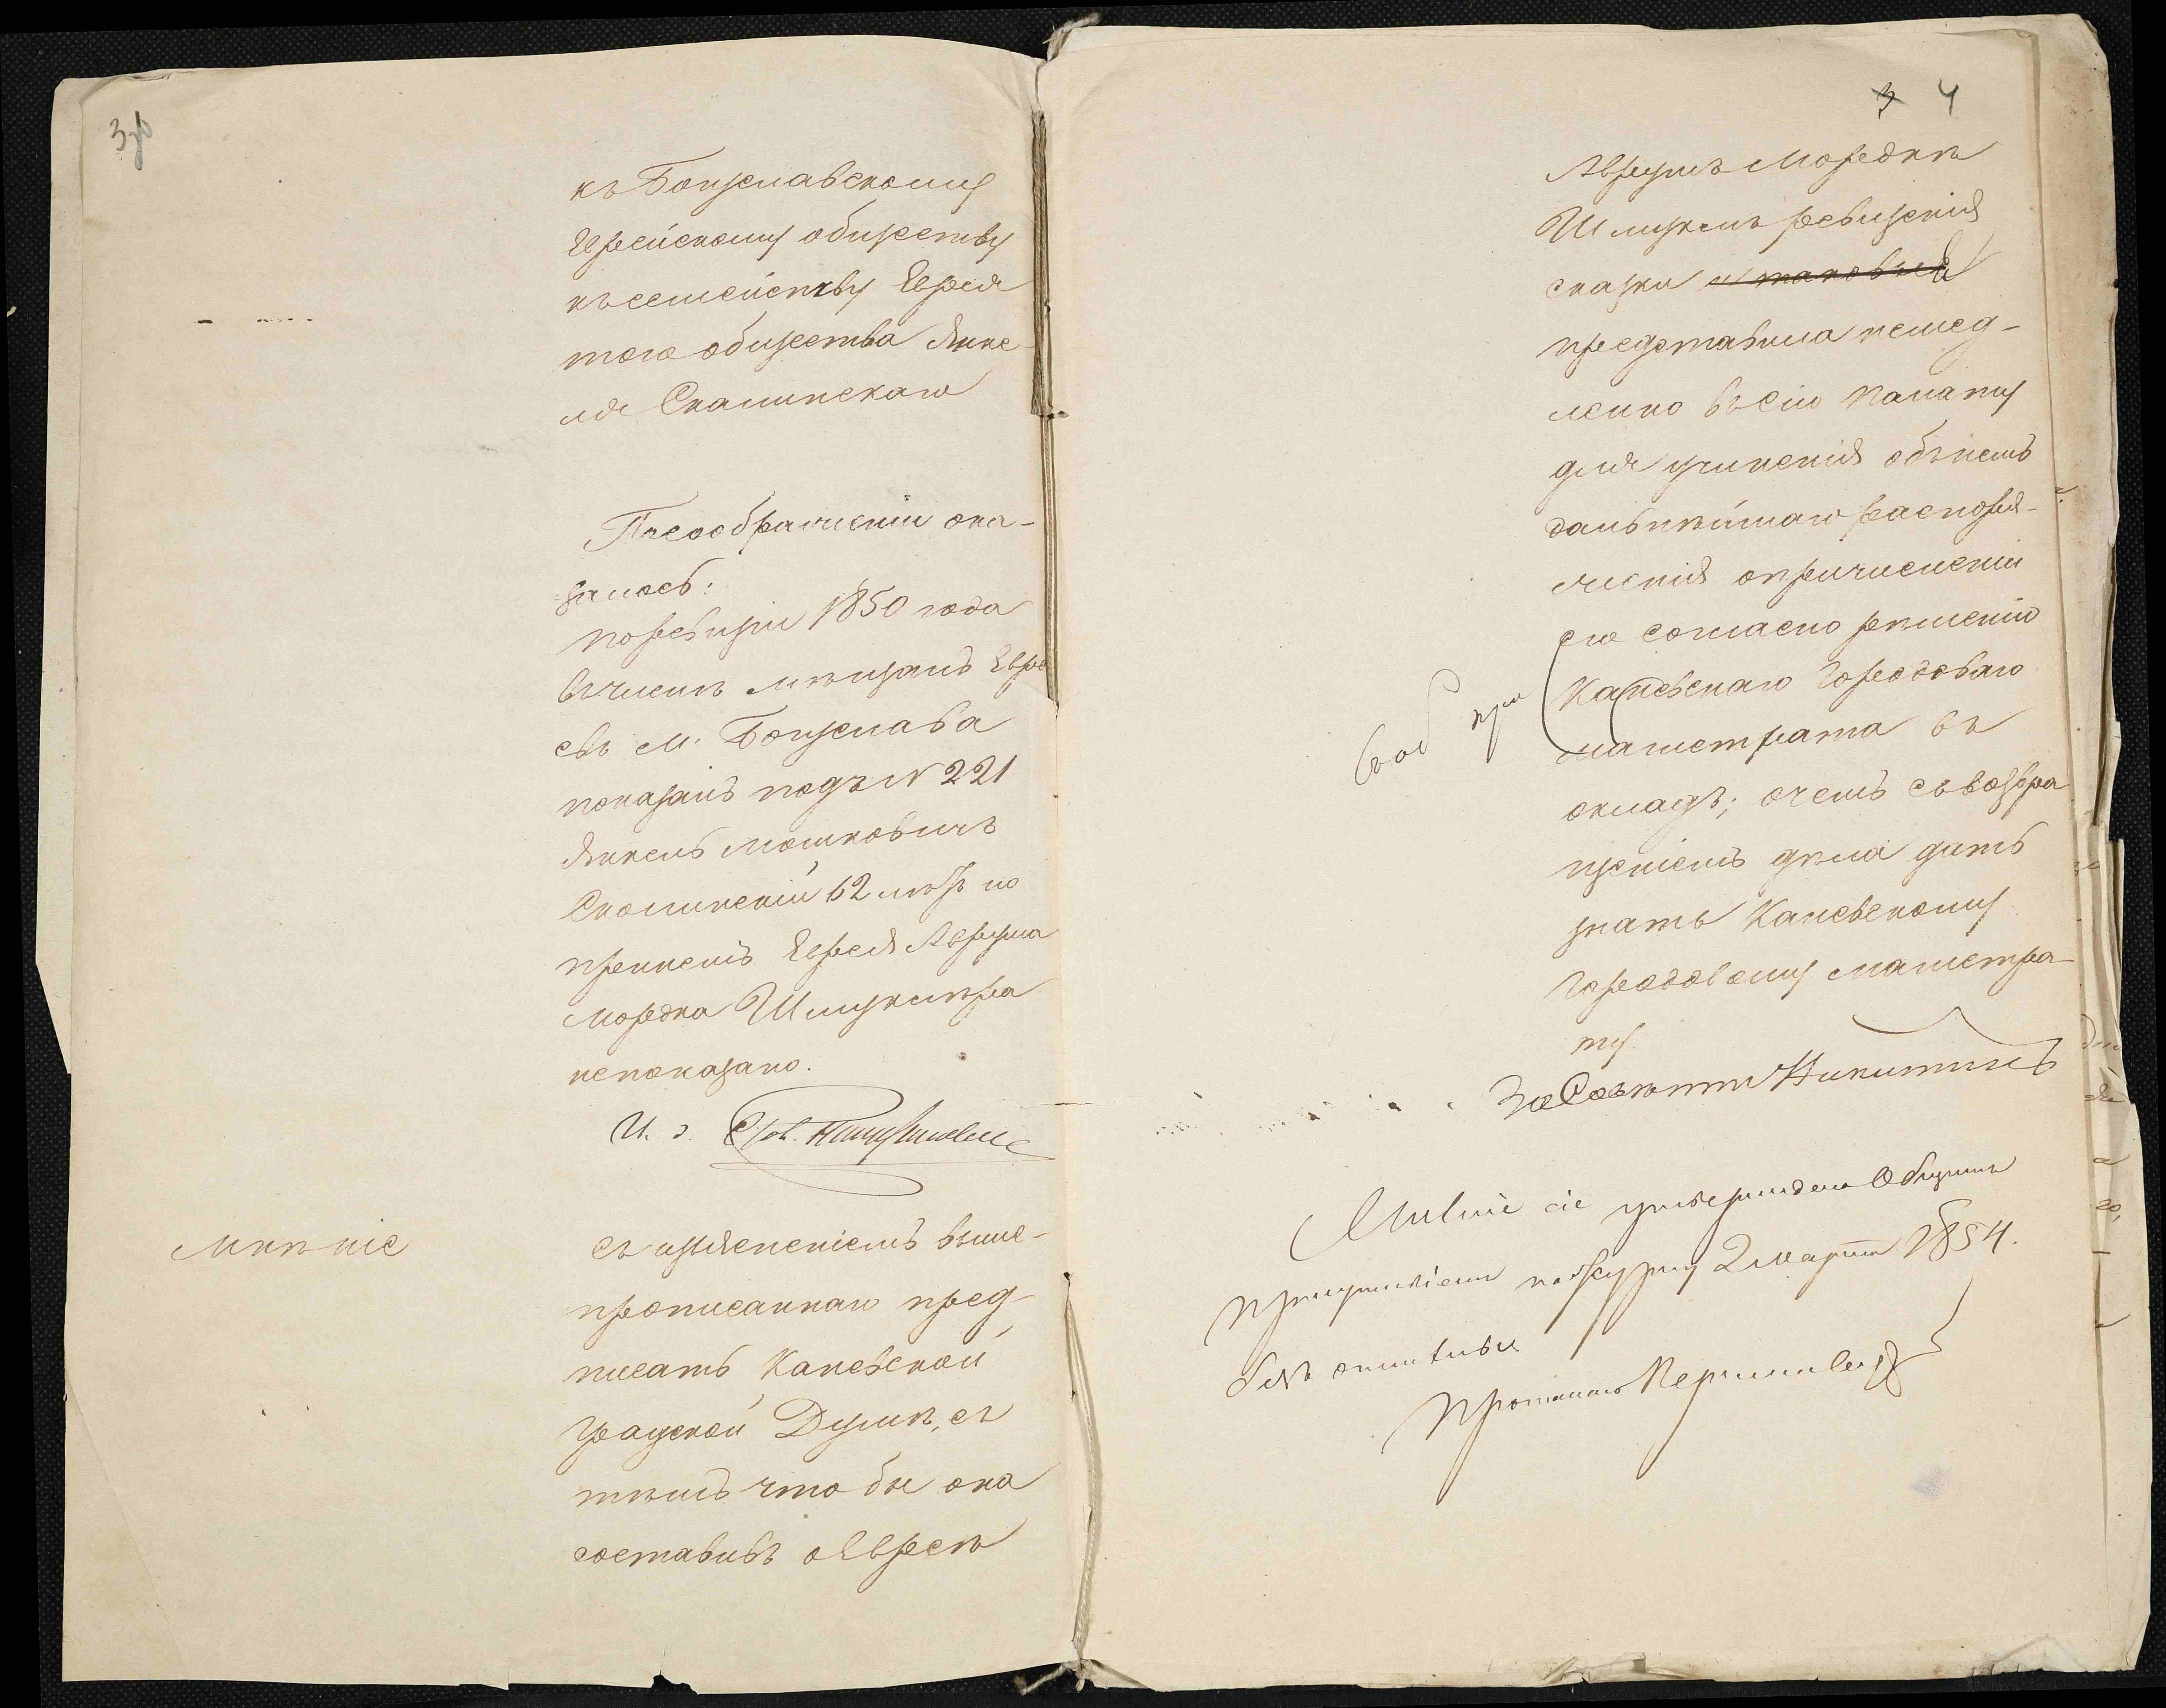 3об
къ Богуславскому
Еврейскому обществу
къ семейству Еврея
того общества Янке-
ля Скалинскаго
По соображеніи ока-
залось:
по ревизіи 1850 года
въ числѣ мѣщанъ Евре
евъ м. Богуслава
показанъ подъ N 221
Янкель Мошковичъ
Сколинскій 62 лѣтъ но
при немъ Еврея Аврума
Мордка Шмуклѣра
непоказано.
И. д.
Мнѣніе
Съ изъясненіемъ выше-
прописаннаго пред-
писать Каневской
Градской Думѣ, съ
тѣмъ что бы она
составивъ о Евреѣ
3 4
Аврумѣ Мордкѣ
Шмуклѣ ревизскія
сказки и таковыя
представила немед-
ленно въ сію Палату
для учиненія объ немъ
дальнѣйшаго распоря-
женія о причисленіи
его согласно рѣшенію
Каневскаго Городоваго
магистрата въ
окладъ; о чемъ съ возвра
щеніемъ дѣла дать
знать Каневскому
Городовому магистра-
ту.
За Совѣтни Никитинъ
Мнѣніе сіе утверждено Общимъ
Присутствіемъ по журну 2 марта 1854.